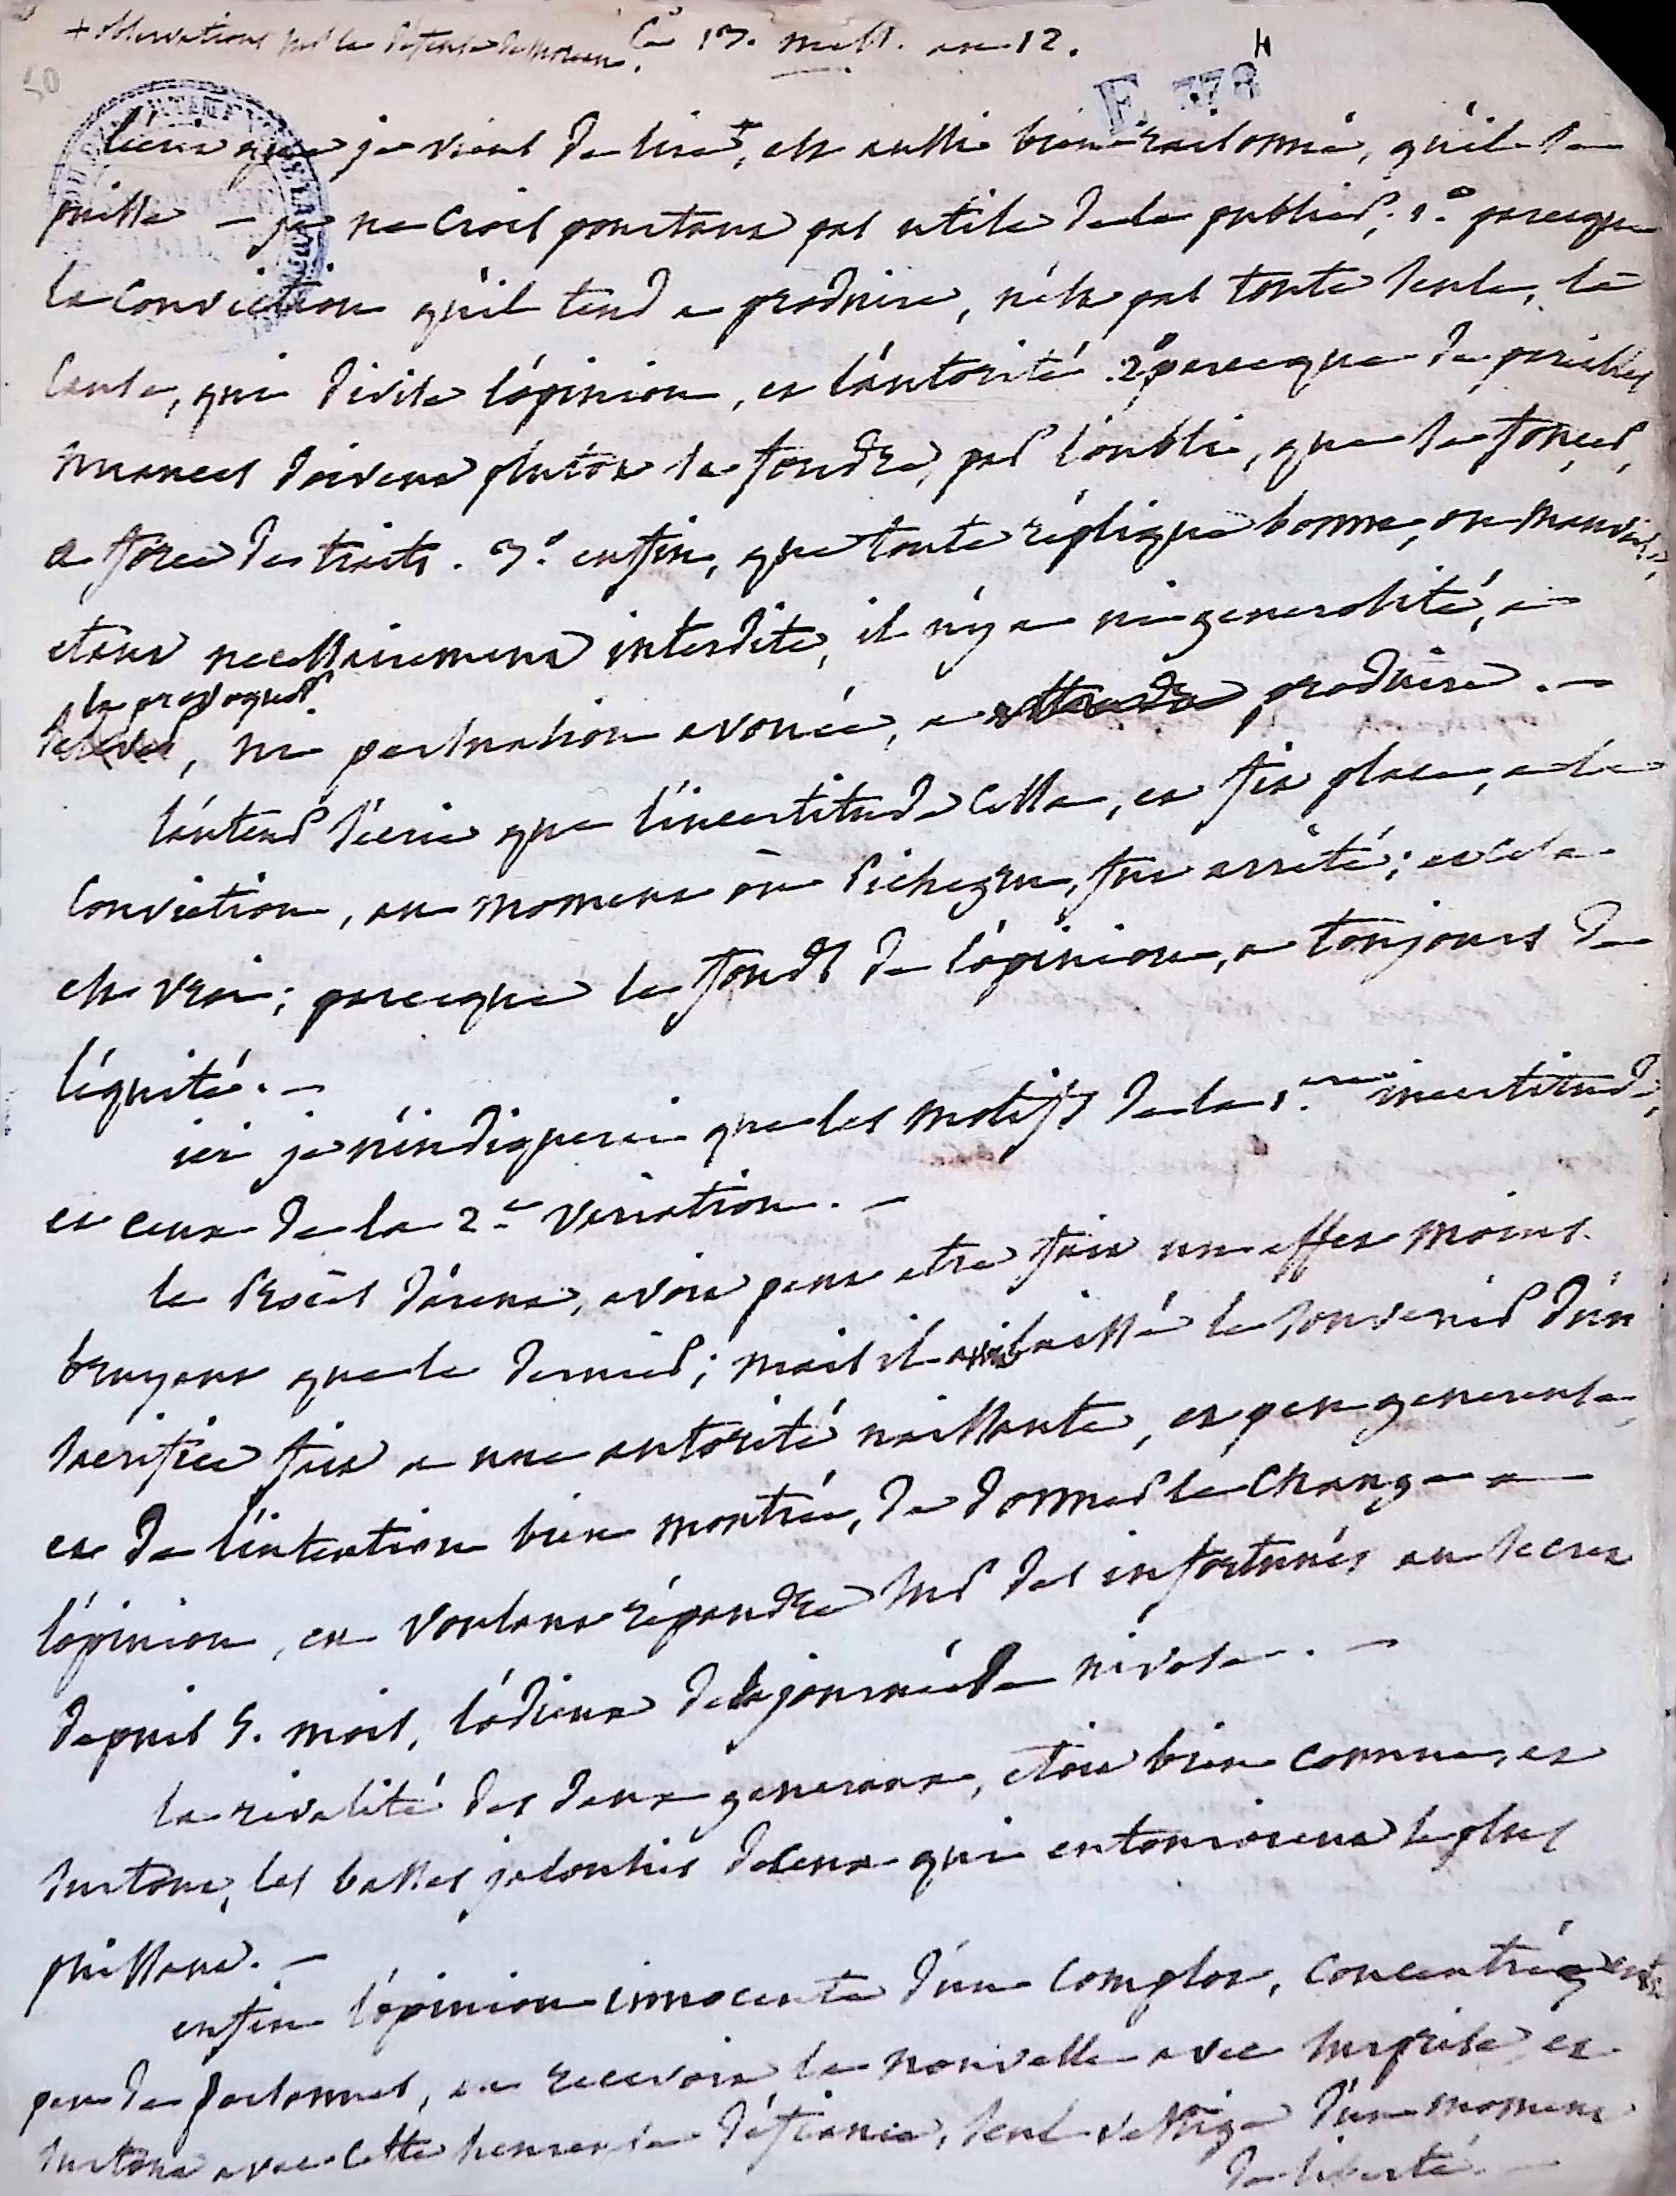 + observations sur la defense de Moreau. Ce 13. mess. an 12.
H
50
F 778
l'écrit que je viens de lire, est aussi bien raisonné, qu'il se
puisse — je ne crois pourtant pas utile de le publier; 1.° parceque
la conviction qu'il tend a produire, n'est pas toute seule, la
cause, qui divise l'opinion, et l'autorité. 2° parceque de pareilles
nuances doivent plutot se fondre, par l'oubli, que se foncer,
a force de traits. 3.° enfin, que toute réplique bonne, ou mauvaise,
etant necessairement interdite, il n'y a ni generosité, a
la provoquer
, ni persuasion avouée, a produire. —
l'auteur s'écrie que l'incertitude cessa, et fit place, a la
conviction, au moment où Pichegru, fut arrêté; et cela
est vrai; parceque le fonds de l'opinion, a toujours de
l'équité. —
ici je n'indiquerai que les motifs de la 1.ere incertitude,
et ceux de la 2.e variation. —
le procès d'arena, avoit peut etre fait un effet moins
bruyant que le dernier; mais il avoit laissé le souvenir d'un
sacrifice fait a une autorité naissante, et peu genereuse,
et de l'intention bien montrée, de donner le change a
l'opinion, en voulant répandre sur des infortunés au secret
depuis 5. mois, l'odieux de la journée de nivose. —
la rivalité des deux generaux, etoit bien connue, et
surtout, les basses jalousies de ceux qui entouroient le plus
puissant. —
enfin l'opinion innocente d'un complot, concentré entre
peu de personnes, en recevoit la nouvelle avec surprise et
surtout avec cette heureuse défiance, seul vestige d'un moment
de liberté. —